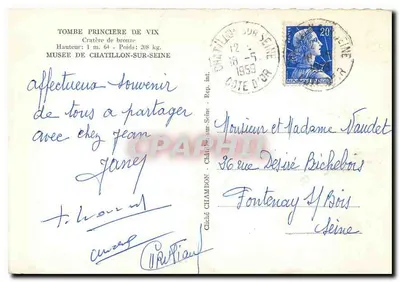 TOMBE PRINCIERE DE VIX
Cratère de bronze
Hauteur: 1 m. 64 - Poids: 208 kg.
MUSEE DE CHATILLON-SUR-SEINE
affectueux souvenir
de tous a partager
avec chez Jean
Janey
Christian
Cliché CHAMDON - Châtillon-sur-Seine - Rep. int.
CHATILLON SUR SEINE
12
16-5
1959
COTE D'OR
20F
Monsieur et Madame Naudet
36 rue Désiré Richebois
Fontenay s/ Bois
Seine